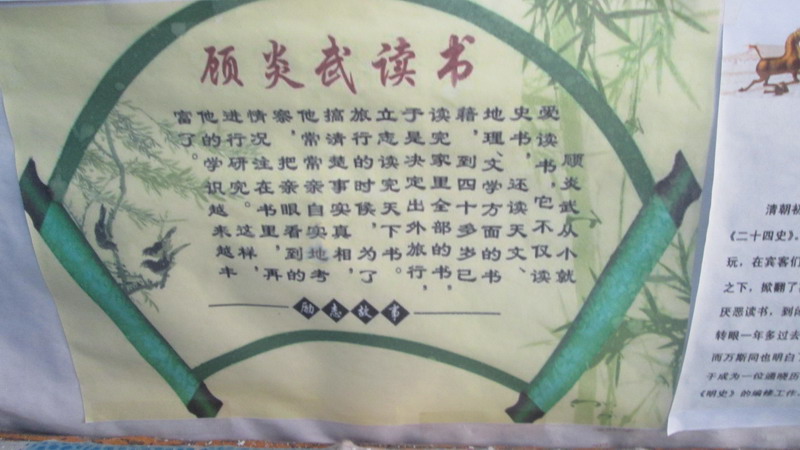 顾炎武读书
顾炎武从小就
爱读书，它不仅读
史书，还读天文、
地理、文学方面的书
籍，到四十多岁已
读完家里全部的书，
于是决定出外旅行，
立志读完天下书。
旅行的时候，为了
搞清楚事实真相，
他常常亲自实地考
察，把亲眼看到的
情况注在书里，再
进行研究。这样，
他的学识越来越丰
富了。
励志故事
清朝
《二十四史》。
玩，在宾客们
之下，掀翻了
厌恶读书，到
转眼一年多过去
而万斯同也明白了
于成为一位通晓历
《明史》的编修工作。